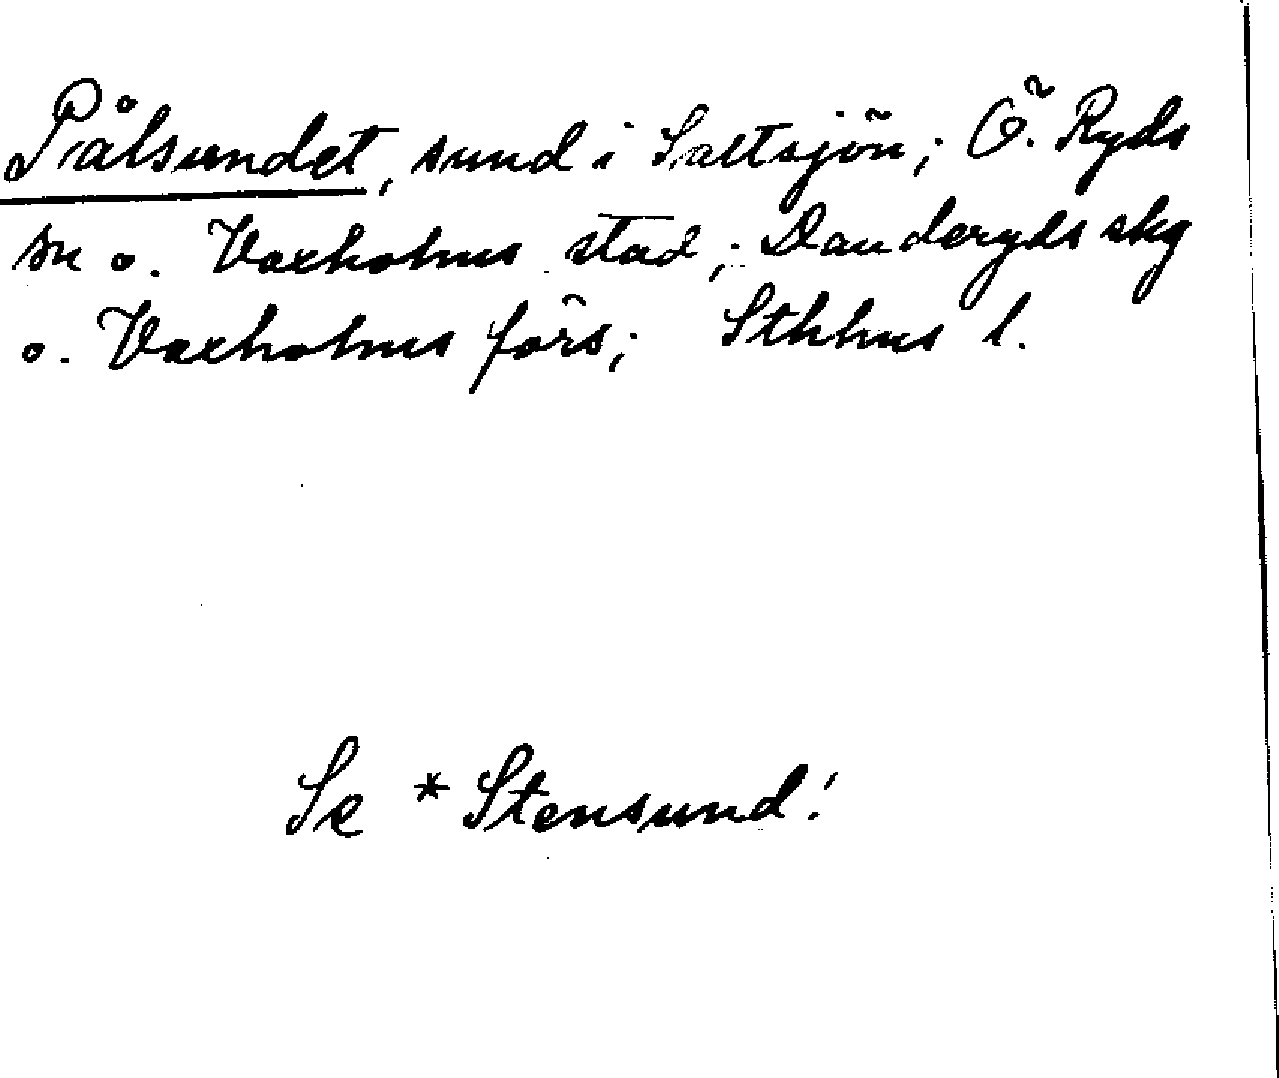 Pålsundet, sund i Saltsjön; Ö. Ryds
sn o. Vaxholms stad; Danderyds skg
o. Vaxholms förs; Sthlms l.
Se * Stensund!